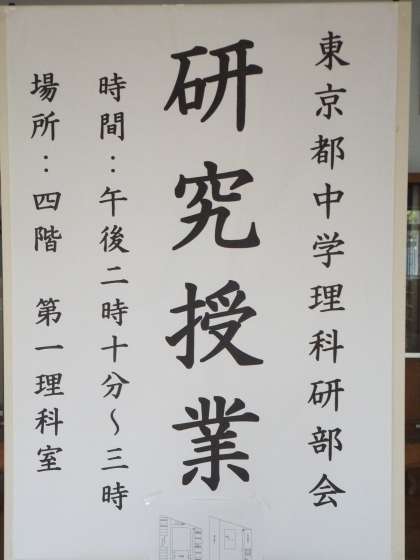 東京都中学理科研部会
研究授業
時間：午後二時十分～三時
場所：四階　第一理科室